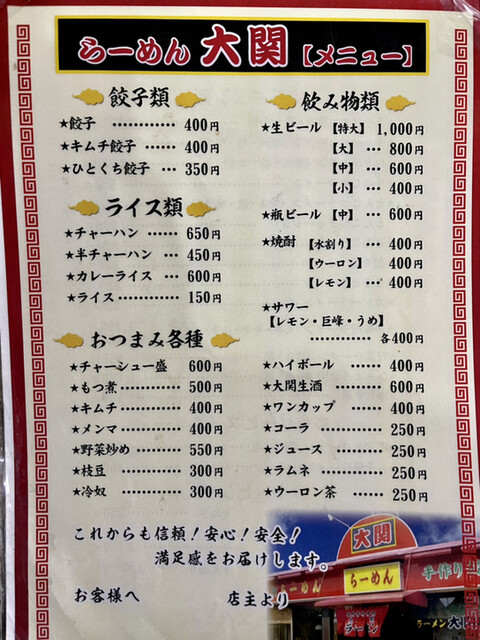 らーめん 大関【メニュー】
餃子類
★餃子 ………… 400円
★キムチ餃子 …… 400円
★ひとくち餃子 … 350円
ライス類
★チャーハン …… 650円
★半チャーハン … 450円
★カレーライス … 600円
★ライス ………… 150円
おつまみ各種
★チャーシュー盛 600円
★もつ煮 ………… 500円
★キムチ ………… 400円
★メンマ ………… 400円
★野菜炒め ……… 550円
★枝豆 ………… 300円
★冷奴 ………… 300円
飲み物類
★生ビール【特大】 1,000円
【大】 … 800円
【中】 … 600円
【小】 … 400円
★瓶ビール【中】 … 600円
★焼酎【水割り】 … 400円
【ウーロン】 400円
【レモン】 … 400円
★サワー
【レモン・巨峰・うめ】
………… 各400円
★ハイボール …… 400円
★大関生酒 ……… 600円
★ワンカップ …… 400円
★コーラ ………… 250円
★ジュース ……… 250円
★ラムネ ………… 250円
★ウーロン茶 …… 250円
これからも信頼！安心！安全！
満足感をお届けします。
お客様へ 店主より
大関
らーめん
らーめん
手作り
ラーメン
ラーメン 大関